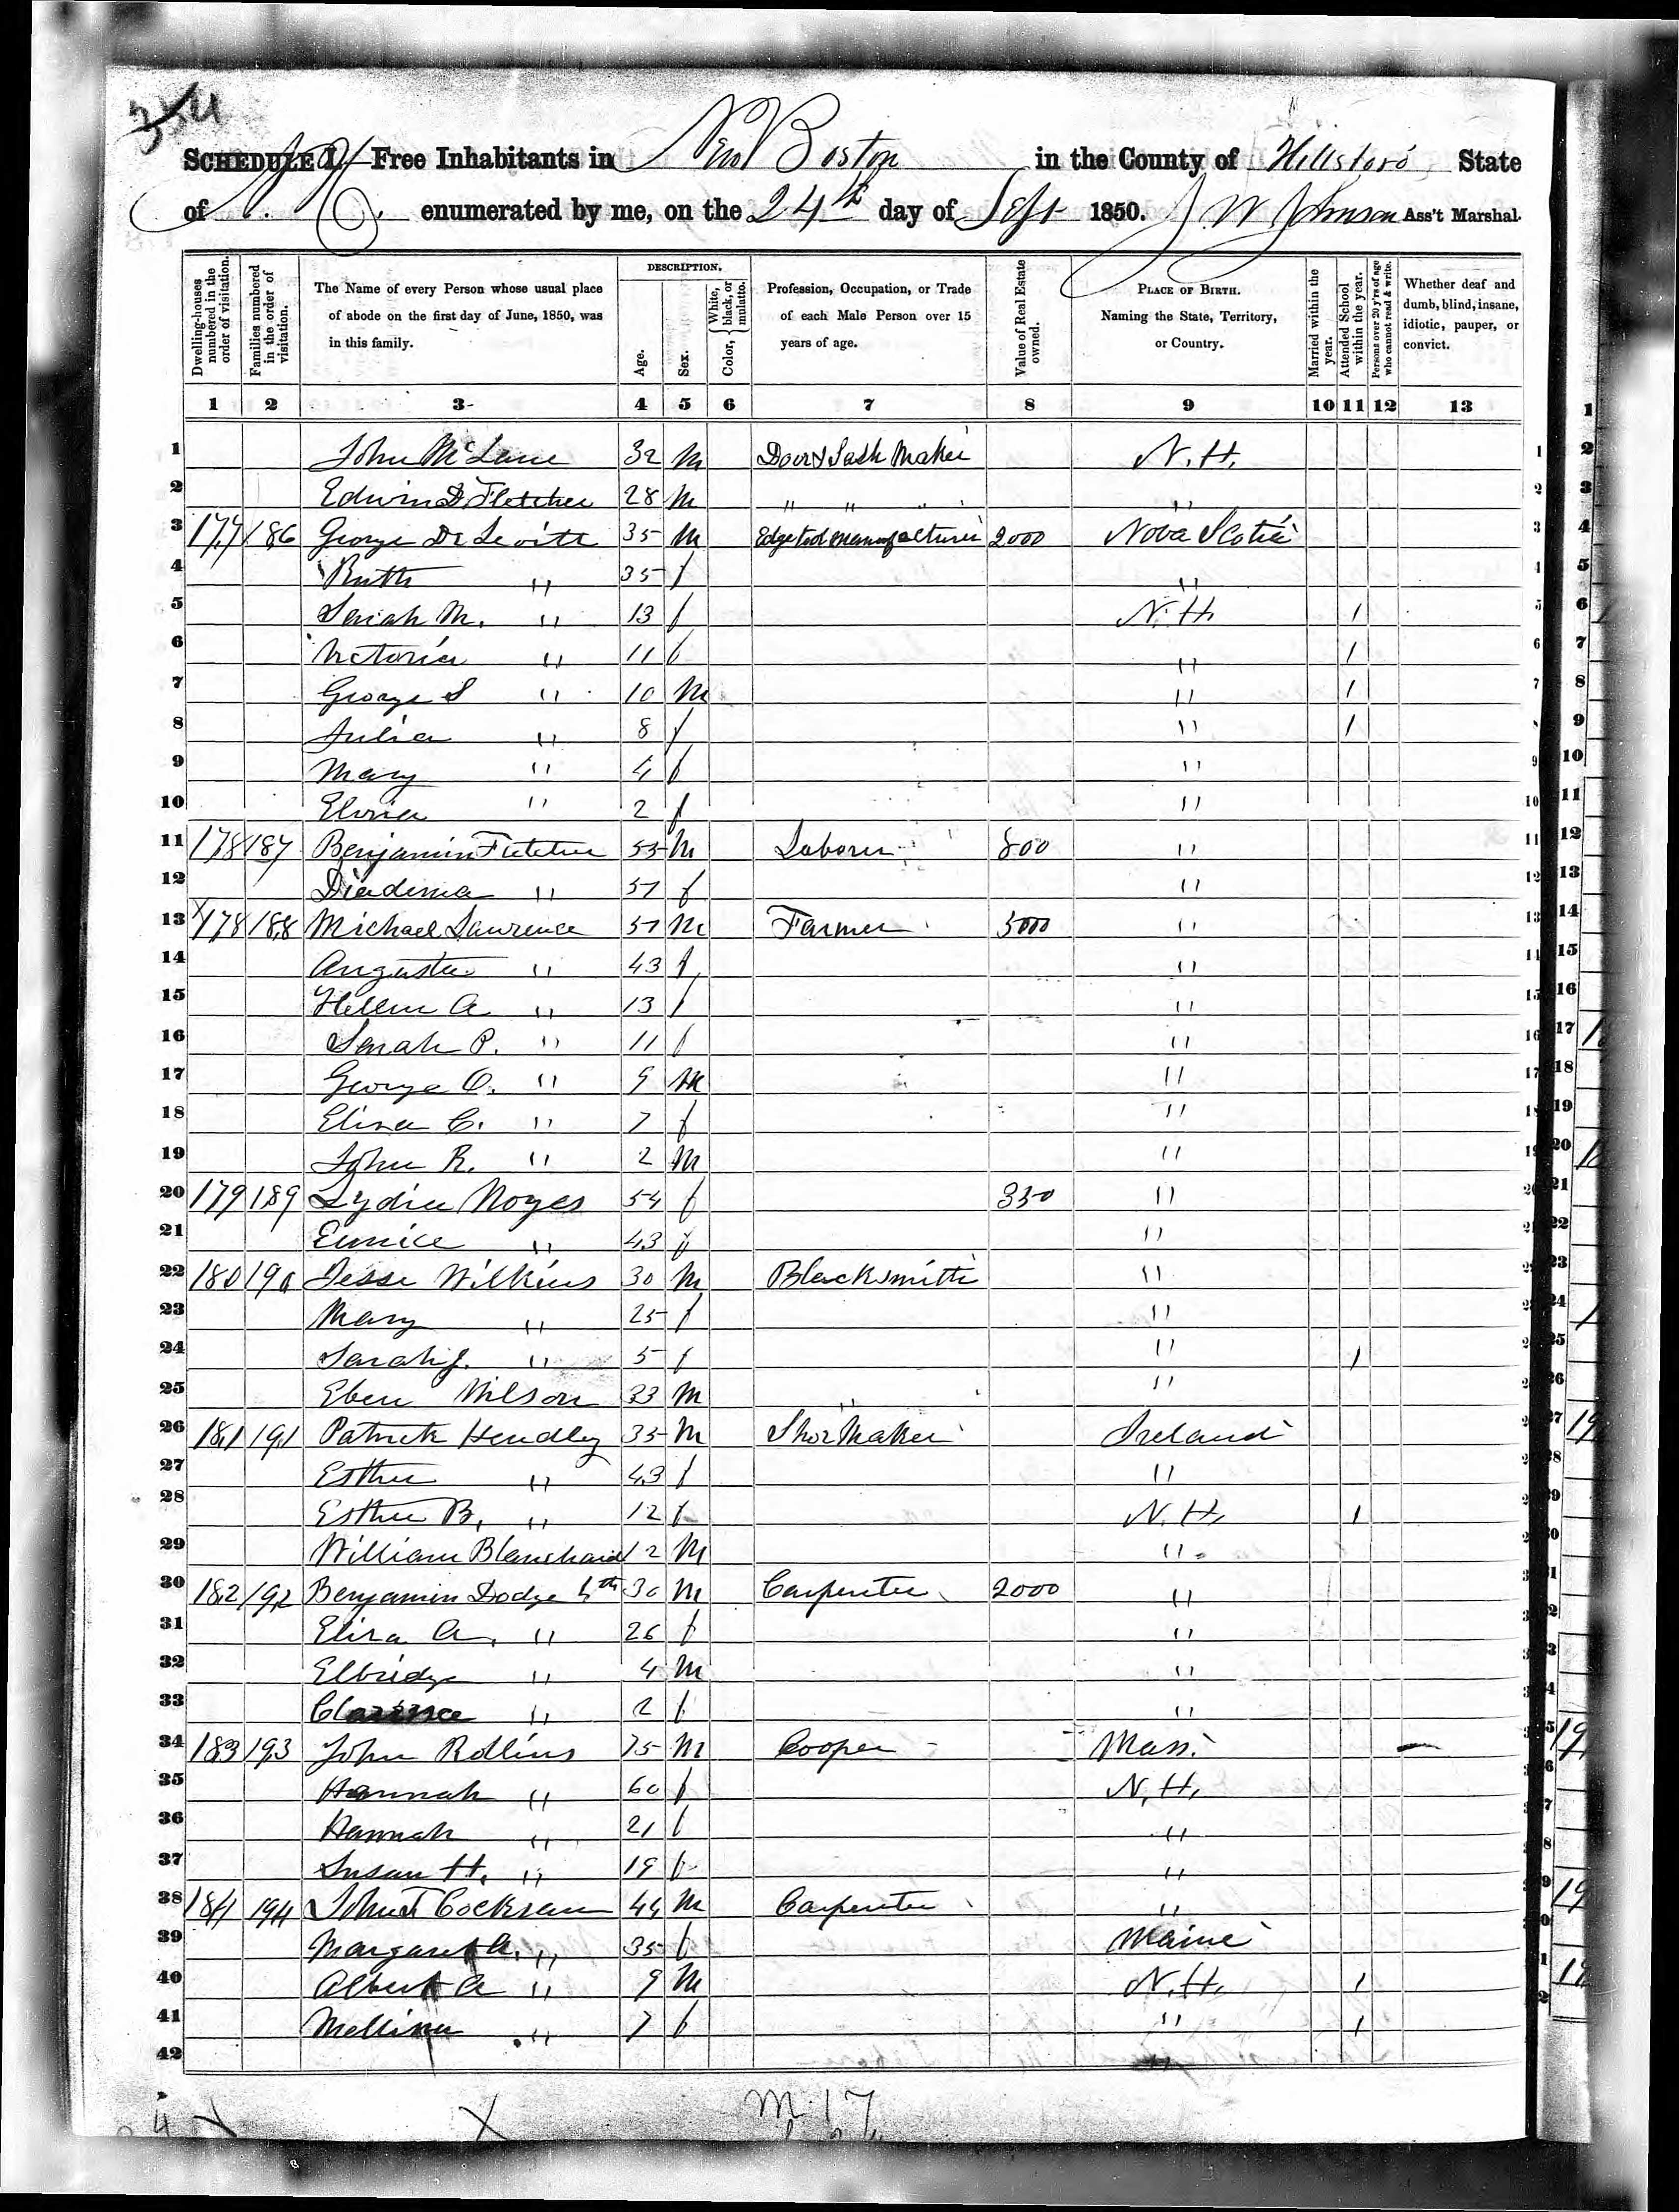 334
SCHEDULE I. Free Inhabitants in New Boston in the County of Hillsboro State
of N. H. enumerated by me, on the 24th day of Sept 1850. J W Johnson Ass't Marshal.
Dwelling-houses numbered in the order of visitation.
Families numbered in the order of visitation.
The Name of every Person whose usual place of abode on the first day of June, 1850, was in this family.
DESCRIPTION.
Age.
Sex.
Color, White, black, or mulatto.
Profession, Occupation, or Trade of each Male Person over 15 years of age.
Value of Real Estate owned.
PLACE OF BIRTH. Naming the State, Territory, or Country.
Married within the year.
Attended School within the year.
Persons over 20 y'rs of age who cannot read & write.
Whether deaf and dumb, blind, insane, idiotic, pauper, or convict.
1 2 3 4 5 6 7 8 9 10 11 12 13
1 John McLane 32 M Door & Sash Maker N. H.
2 Edwin D Fletcher 28 M " " " "
3 177 186 George De Levitt 35 M Edge tool manufacturer 2000 Nova Scotia
4 Ruth " 35 f "
5 Sariah M. " 13 f N. H. 1
6 Victoria " 11 f " 1
7 George S " 10 M " 1
8 Julia " 8 f " 1
9 Mary " 4 f "
10 Elvira " 2 f "
11 178 187 Benjamin Fletcher 55 M Laborer 800 "
12 Diadema " 57 f "
13 178 188 Michael Lawrence 57 M Farmer 5000 "
14 Augusta " 43 f "
15 Hellen A " 13 f "
16 Sarah P. " 11 f "
17 George O. " 9 M "
18 Eliza C. " 7 f "
19 John R. " 2 M "
20 179 189 Lydia Noyes 54 f 350 "
21 Eunice " 43 f "
22 180 190 Jesse Wilkins 30 M Blacksmith "
23 Mary " 25 f "
24 Sarah J. " 5 f " 1
25 Eben Wilson 33 M " "
26 181 191 Patrick Hendley 35 M Shoe Maker Ireland
27 Esther " 43 f "
28 Esther B. " 12 f N. H. 1
29 William Blanchard 12 M "
30 182 192 Benjamin Dodge 4th 30 M Carpenter 2000 "
31 Eliza A. " 26 f "
32 Elbridge " 4 M "
33 Clarinea " 2 f "
34 183 193 John Rollins 75 M Cooper Mass.
35 Hannah " 60 f N. H.
36 Hannah " 21 f "
37 Susan H. " 19 f "
38 184 194 John T Cockran 44 M Carpenter "
39 Margaret A. " 35 f Maine
40 Albert A " 9 M N. H. 1
41 Mellissa " 7 f " 1
42
M 17